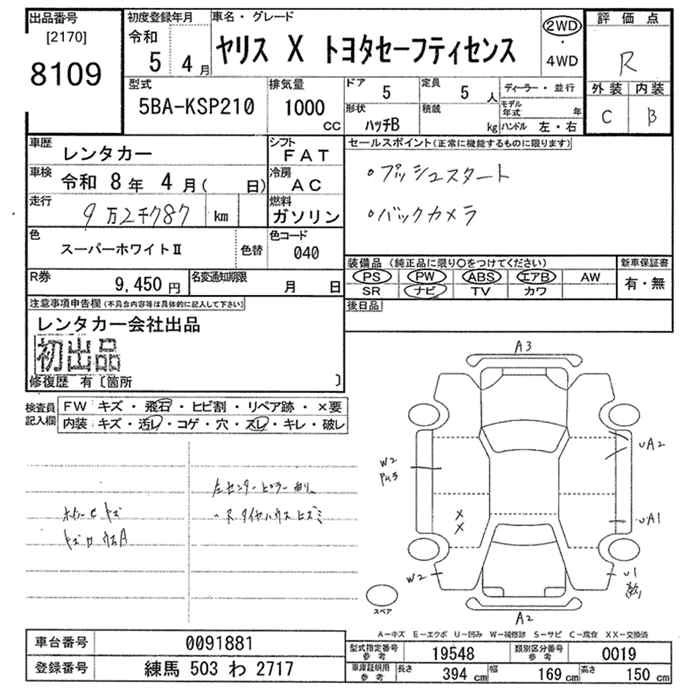 出品番号 初度登録年月 車名・グレード 評価点
[2170] 令和 ヤリス X トヨタセーフティセンス 2WD・4WD R
8109 5年 4月
型式 排気量 ドア 5 定員 5人 ディーラー・並行 外装 内装
5BA-KSP210 1000cc 形状 ハッチB 積載 kg モデル年式 年 ハンドル 左・右 C B
車歴 レンタカー シフト FAT セールスポイント(正常に機能するものに限ります)
車検 令和 8年 4月( 日) 冷房 AC ・プッシュスタート
走行 9万2千787 km 燃料 ガソリン ・バックカメラ
色 スーパーホワイトⅡ 色替 色コード 040
装備品(純正品に限り○をつけてください) 新車保証書
R券 9,450円 名変通知期限 月 日 PS PW ABS エアB AW 有・無
SR ナビ TV カワ
注意事項申告欄(不具合内容等は具体的に記入して下さい) 後日品
レンタカー会社出品
初出品
修復歴 有〔箇所 〕
検査員記入欄 FW キズ・飛石・ヒビ割・リペア跡・×要
内装 キズ・汚レ・コゲ・穴・スレ・キレ・破レ
A3
UA2
W2
UA1
W2
U1
A2
左センターピラー曲り
スペア
A-キズ E-エクボ U-凹み W-補修跡 S-サビ C-腐食 XX-交換済
車台番号 0091881 型式指定番号 参考 19548 類別区分番号 参考 0019
登録番号 練馬 503 わ 2717 車庫証明用 参考 長さ 394cm 幅 169cm 高さ 150cm